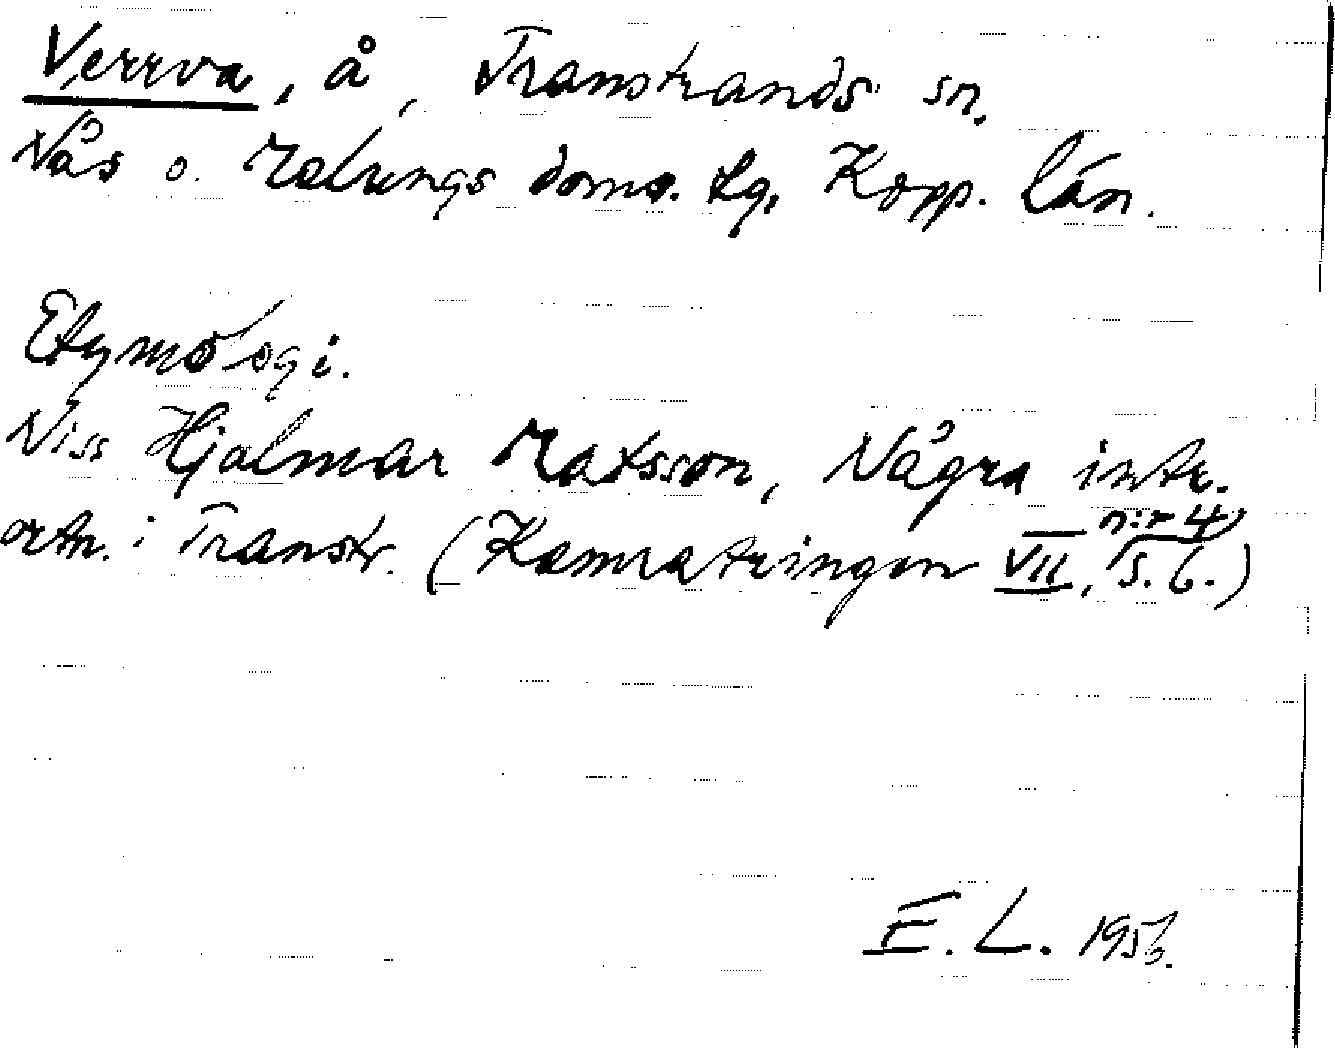 Verrva, å, Transtrands sn.
Nås o. Malungs doms. tg, Kopp. län.
Etymologi.
Viss Hjalmar Matsson, Några intr.
ortn. i Transtr. (Kamratringen VII, nir 4, s. 6.)
E. L. 1956.